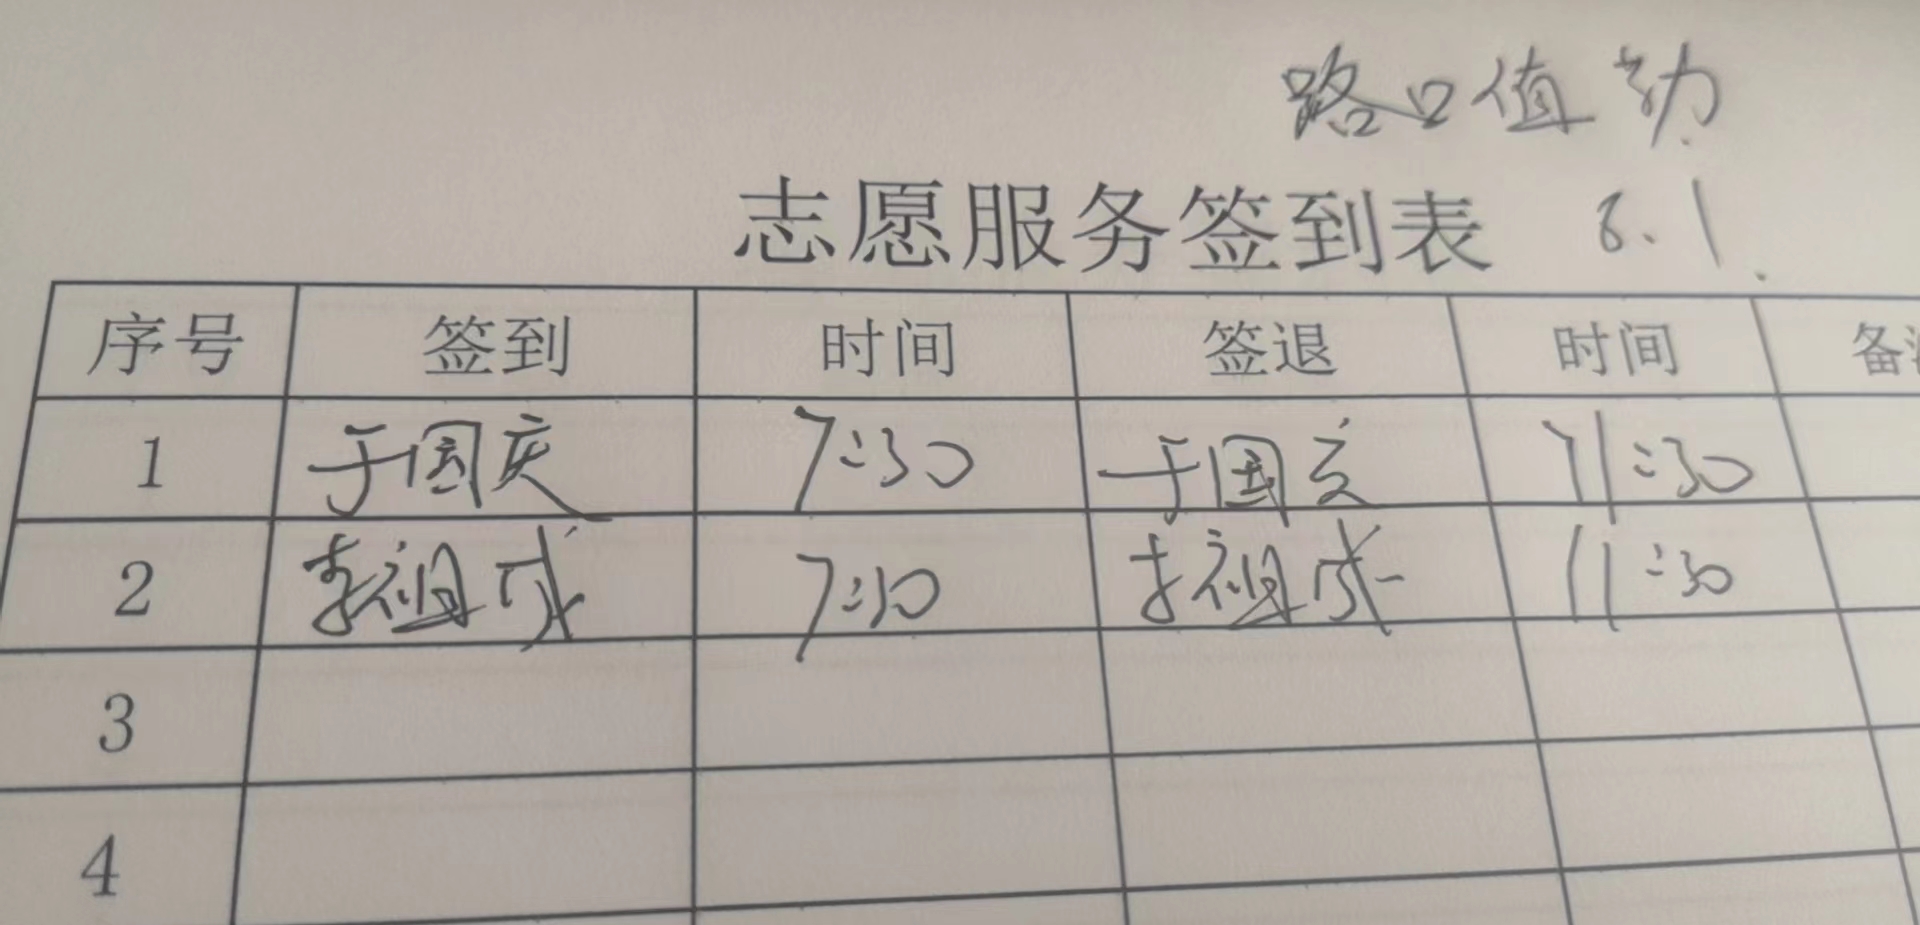 路口值勤
志愿服务签到表 8.1
序号 签到 时间 签退 时间 备
1 于国庆 7:30 于国庆 11:30
2 李祖成 7:30 李祖成 11:30
3
4